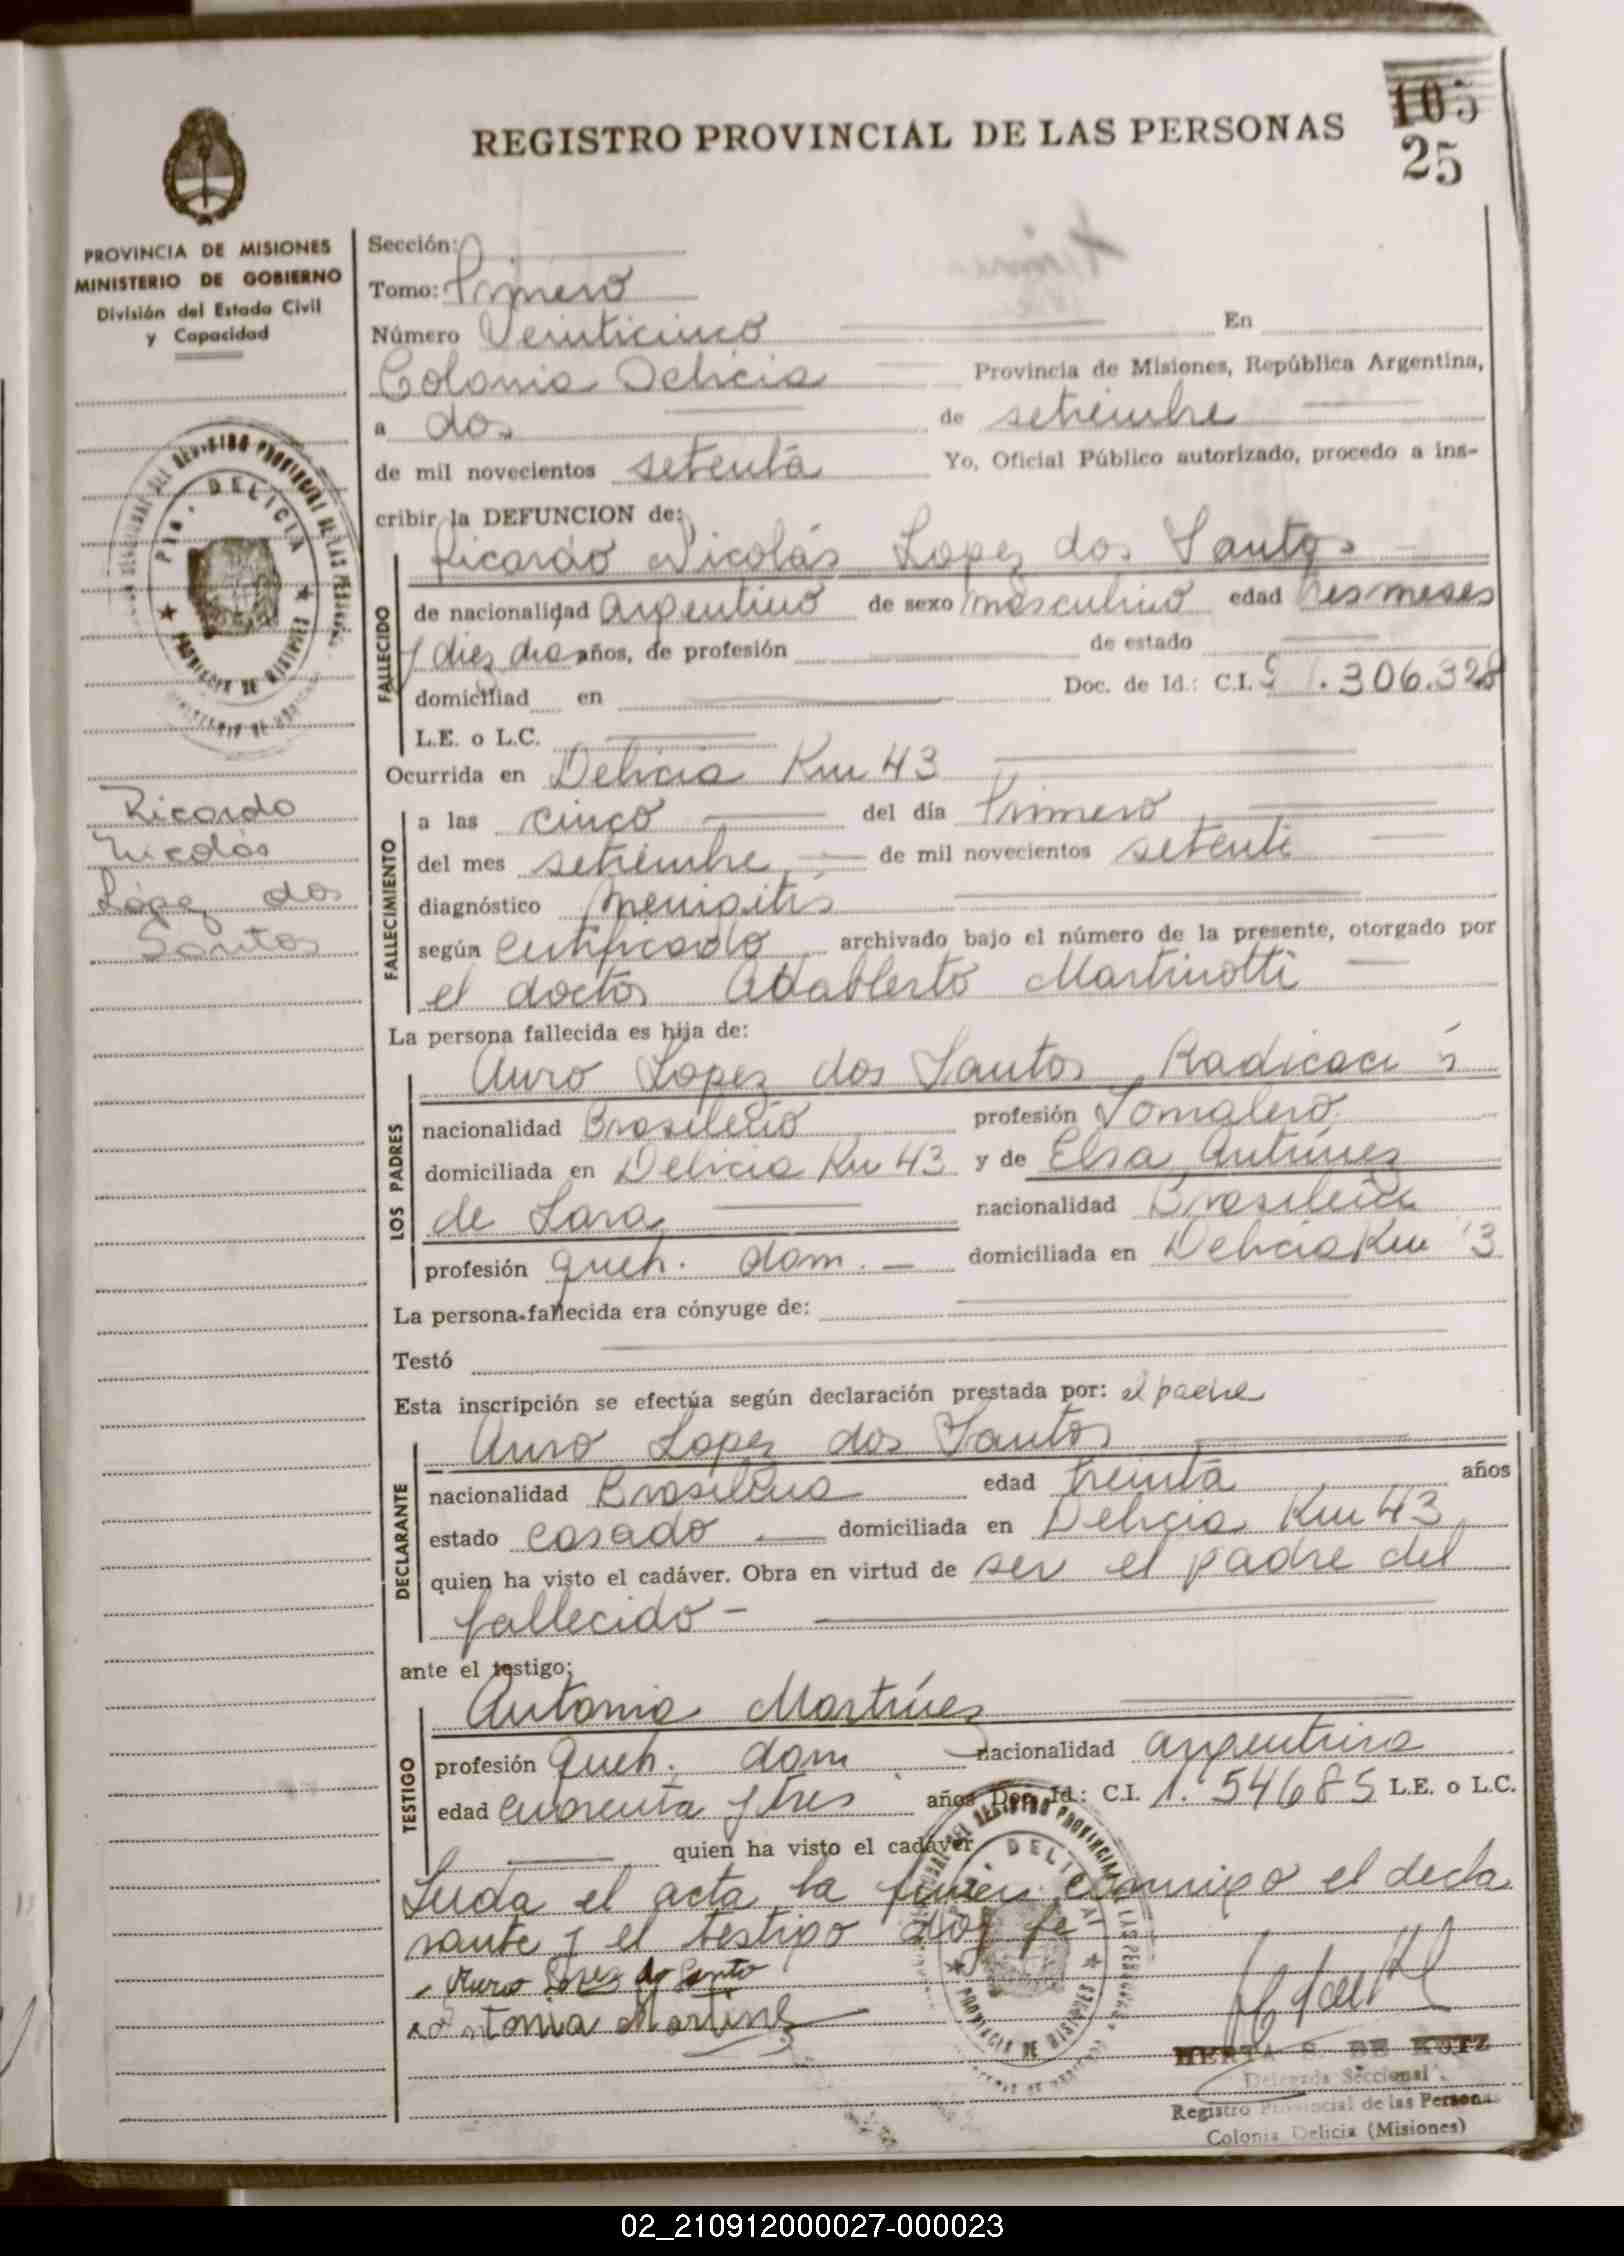 105
25
REGISTRO PROVINCIAL DE LAS PERSONAS
PROVINCIA DE MISIONES
MINISTERIO DE GOBIERNO
División del Estado Civil
y Capacidad
Ricardo
Nicolás
López dos
Santos
Sección:
Tomo: Primero
Número Veinticinco En
Colonia Delicia Provincia de Misiones, República Argentina,
a dos de setiembre
de mil novecientos setenta Yo, Oficial Público autorizado, procedo a ins-
cribir la DEFUNCION de:
Ricardo Nicolás Lopez dos Santos
FALLECIDO
de nacionalidad argentino de sexo masculino edad tres meses
y diez dias años, de profesión de estado
domiciliad en Doc. de Id.: C.I. .306.328
L.E. o L.C.
Ocurrida en Delicia Km 43
FALLECIMIENTO
a las cinco del día Primero
del mes setiembre de mil novecientos setenta
diagnóstico menigitis
según certificado archivado bajo el número de la presente, otorgado por
el doctor Adablerto Martinotti
La persona fallecida es hija de:
LOS PADRES
Auro Lopez dos Santos Radicaci n
nacionalidad Brasileño profesión Jornalero
domiciliada en Delicia Km 43 y de Elsa Antunez
de Lara nacionalidad Brasileña
profesión queh. dom. domiciliada en Delicia Km 3
La persona fallecida era cónyuge de:
Testó
Esta inscripción se efectúa según declaración prestada por: el padre
DECLARANTE
Auro Lopez dos Santos
nacionalidad Brasileña edad treinta años
estado casado domiciliada en Delicia Km 43
quien ha visto el cadáver. Obra en virtud de ser el padre del
fallecido
ante el testigo:
TESTIGO
Antonia Martinez
profesión queh. dom nacionalidad argentina
edad cuarenta y tres años Doc. Id.: C.I. 1.54685 L.E. o L.C.
quien ha visto el cadáver
Leida el acta la firman conmigo el decla
rante y el testigo doy fe
Auro Lopes do Santo
Antonia Martinez
HERTA S. DE KUTZ
Delegada Seccional
Registro Provincial de las Personas
Colonia Delicia (Misiones)
02_210912000027-000023